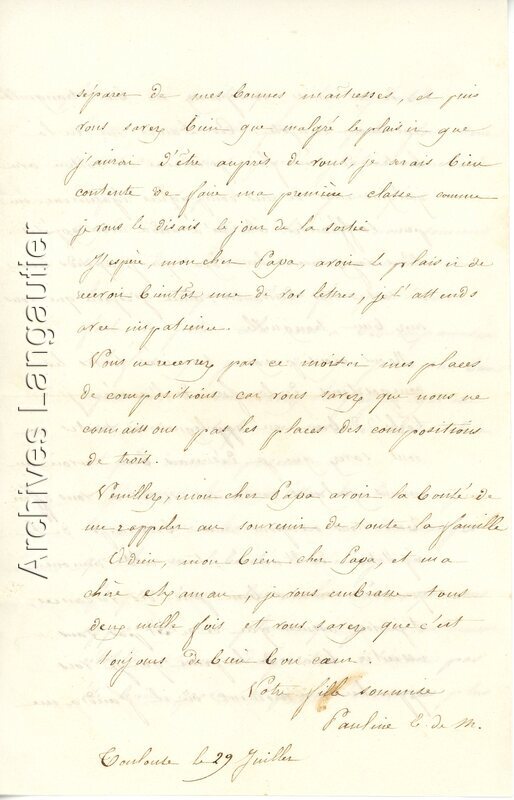 séparer de mes bonnes maîtresses, et puis
vous savez bien que malgré le plaisir que
j'aurai d'être auprès de vous, je serais bien
contente de faire ma première classe comme
je vous le disais le jour de la sortie
J'espère, mon cher Papa, avoir le plaisir de
recevoir bientôt une de vos lettres, je l'attends
avec impatience.
Vous ne recevrez pas ce mois-ci mes places
de compositions car vous savez que nous ne
connaissons pas les places des compositions
de trois.
Veuillez, mon cher Papa avoir la bonté de
me rappeler au souvenir de toute la famille
Adieu, mon bien cher Papa, et ma
chère Maman, je vous embrasse tous
deux mille fois et vous savez que c'est
toujours de bien bon cœur.
Votre fille soumise
Pauline E de M.
Toulouse le 29 Juillet
Archives Langautier